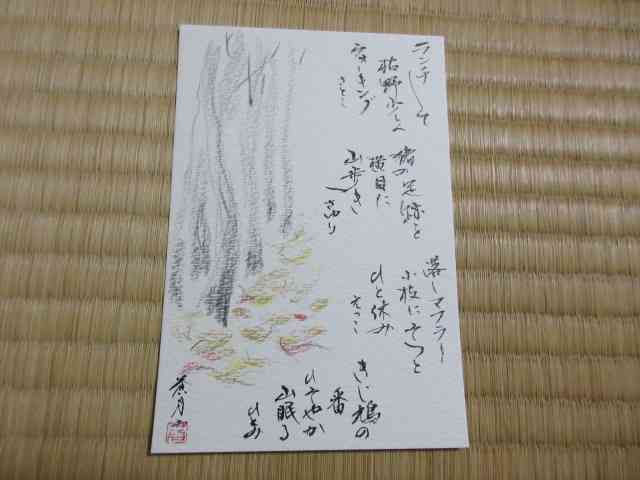 ランチして
枯野少しく
ウォーキング
さとこ
猪の足跡を
横目に
山歩き
さゆり
落しマフラー
小枝にそつと
ひと休み
えつこ
きじ鳩の
番
ひそやか
山眠る
ひろみ